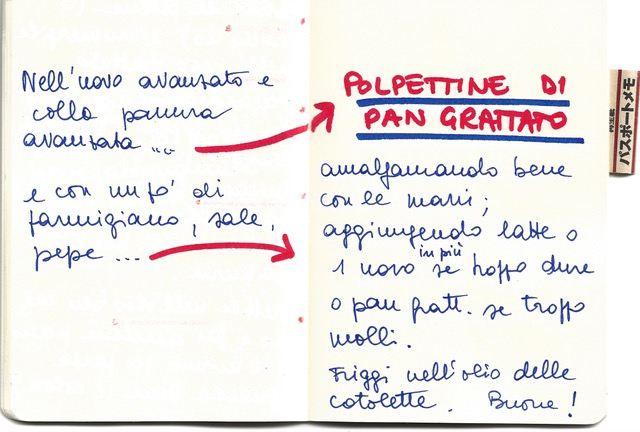 Nell'uovo avanzato e
colla panura
avanzata ...
e con un po' di
parmigiano, sale,
pepe ...
POLPETTINE DI
PAN GRATTATO
amalgamando bene
con le mani;
aggiungendo latte o
1 uovo in più se troppo dure
o pan gratt. se troppo
molli.
Friggi nell'olio delle
cotolette. Buone!
パスポートメモ